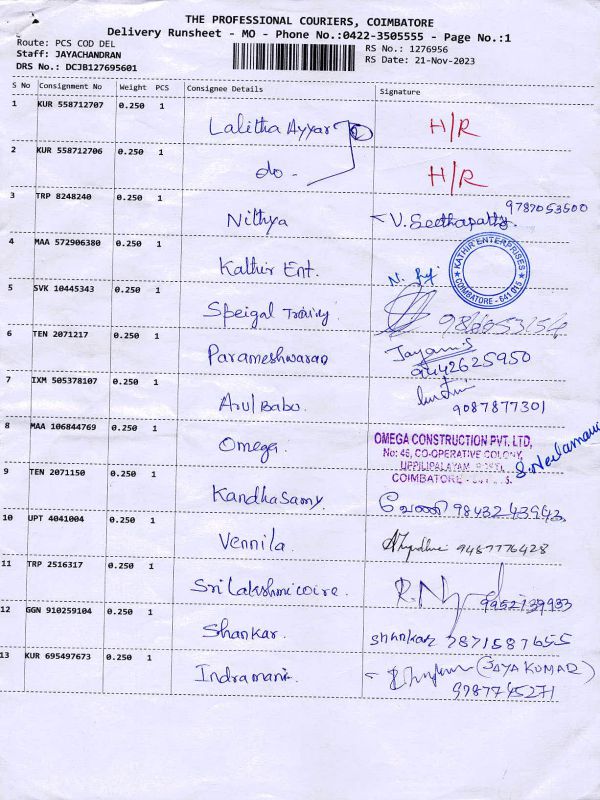 THE PROFESSIONAL COURIERS, COIMBATORE
Delivery Runsheet - MO - Phone No.:0422-3505555 - Page No.:1
Route: PCS COD DEL
Staff: JAYACHANDRAN
DRS No.: DCJB127695601
RS No.: 1276956
RS Date: 21-Nov-2023
S No Consignment No Weight PCS Consignee Details Signature
1 KUR 558712707 0.250 1 Lalitha Ayyar H/R
2 KUR 558712706 0.250 1 do - H/R
3 TRP 8248240 0.250 1 Nithya V. Seethapathy 9787053500
4 MAA 572906380 0.250 1 Kathir Ent.
KATHIR ENTERPRISES
COIMBATORE - 641 015
5 SVK 10445343 0.250 1 Speigal Trading.
6 TEN 2071217 0.250 1 Parameshwaran Jayam.S
9442625950
7 IXM 505378107 0.250 1 Arul Babu.
9087877301
8 MAA 106844769 0.250 1 Omega.
OMEGA CONSTRUCTION PVT. LTD,
No: 46, CO-OPERATIVE COLONY,
UPPILIPALAYAM
COIMBATORE -
9 TEN 2071150 0.250 1 Kandhasamy வேணி 98432 43943
10 UPT 4041004 0.250 1 Vennila. 9487776428
11 TRP 2516317 0.250 1 Sri Lakshmi coire. 9952739933
12 GGN 910259104 0.250 1 Shankar. Shankar 7871587655
13 KUR 695497673 0.250 1 Indramani. (JAYA KUMAR)
9787745271